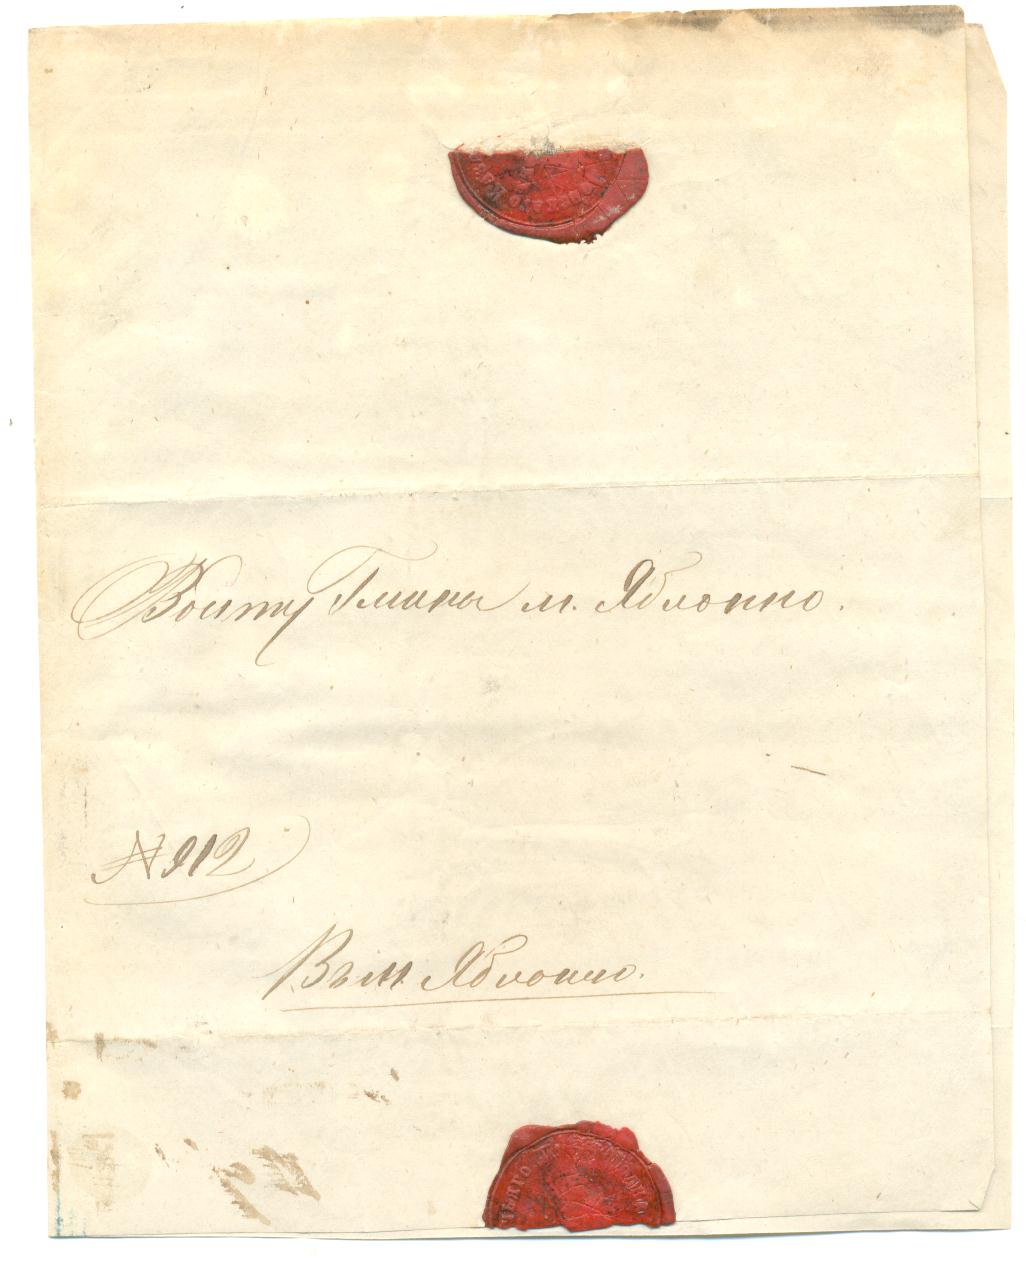 Войту Гмины м. Яблонно.
№ 912
Въ м. Яблонно.